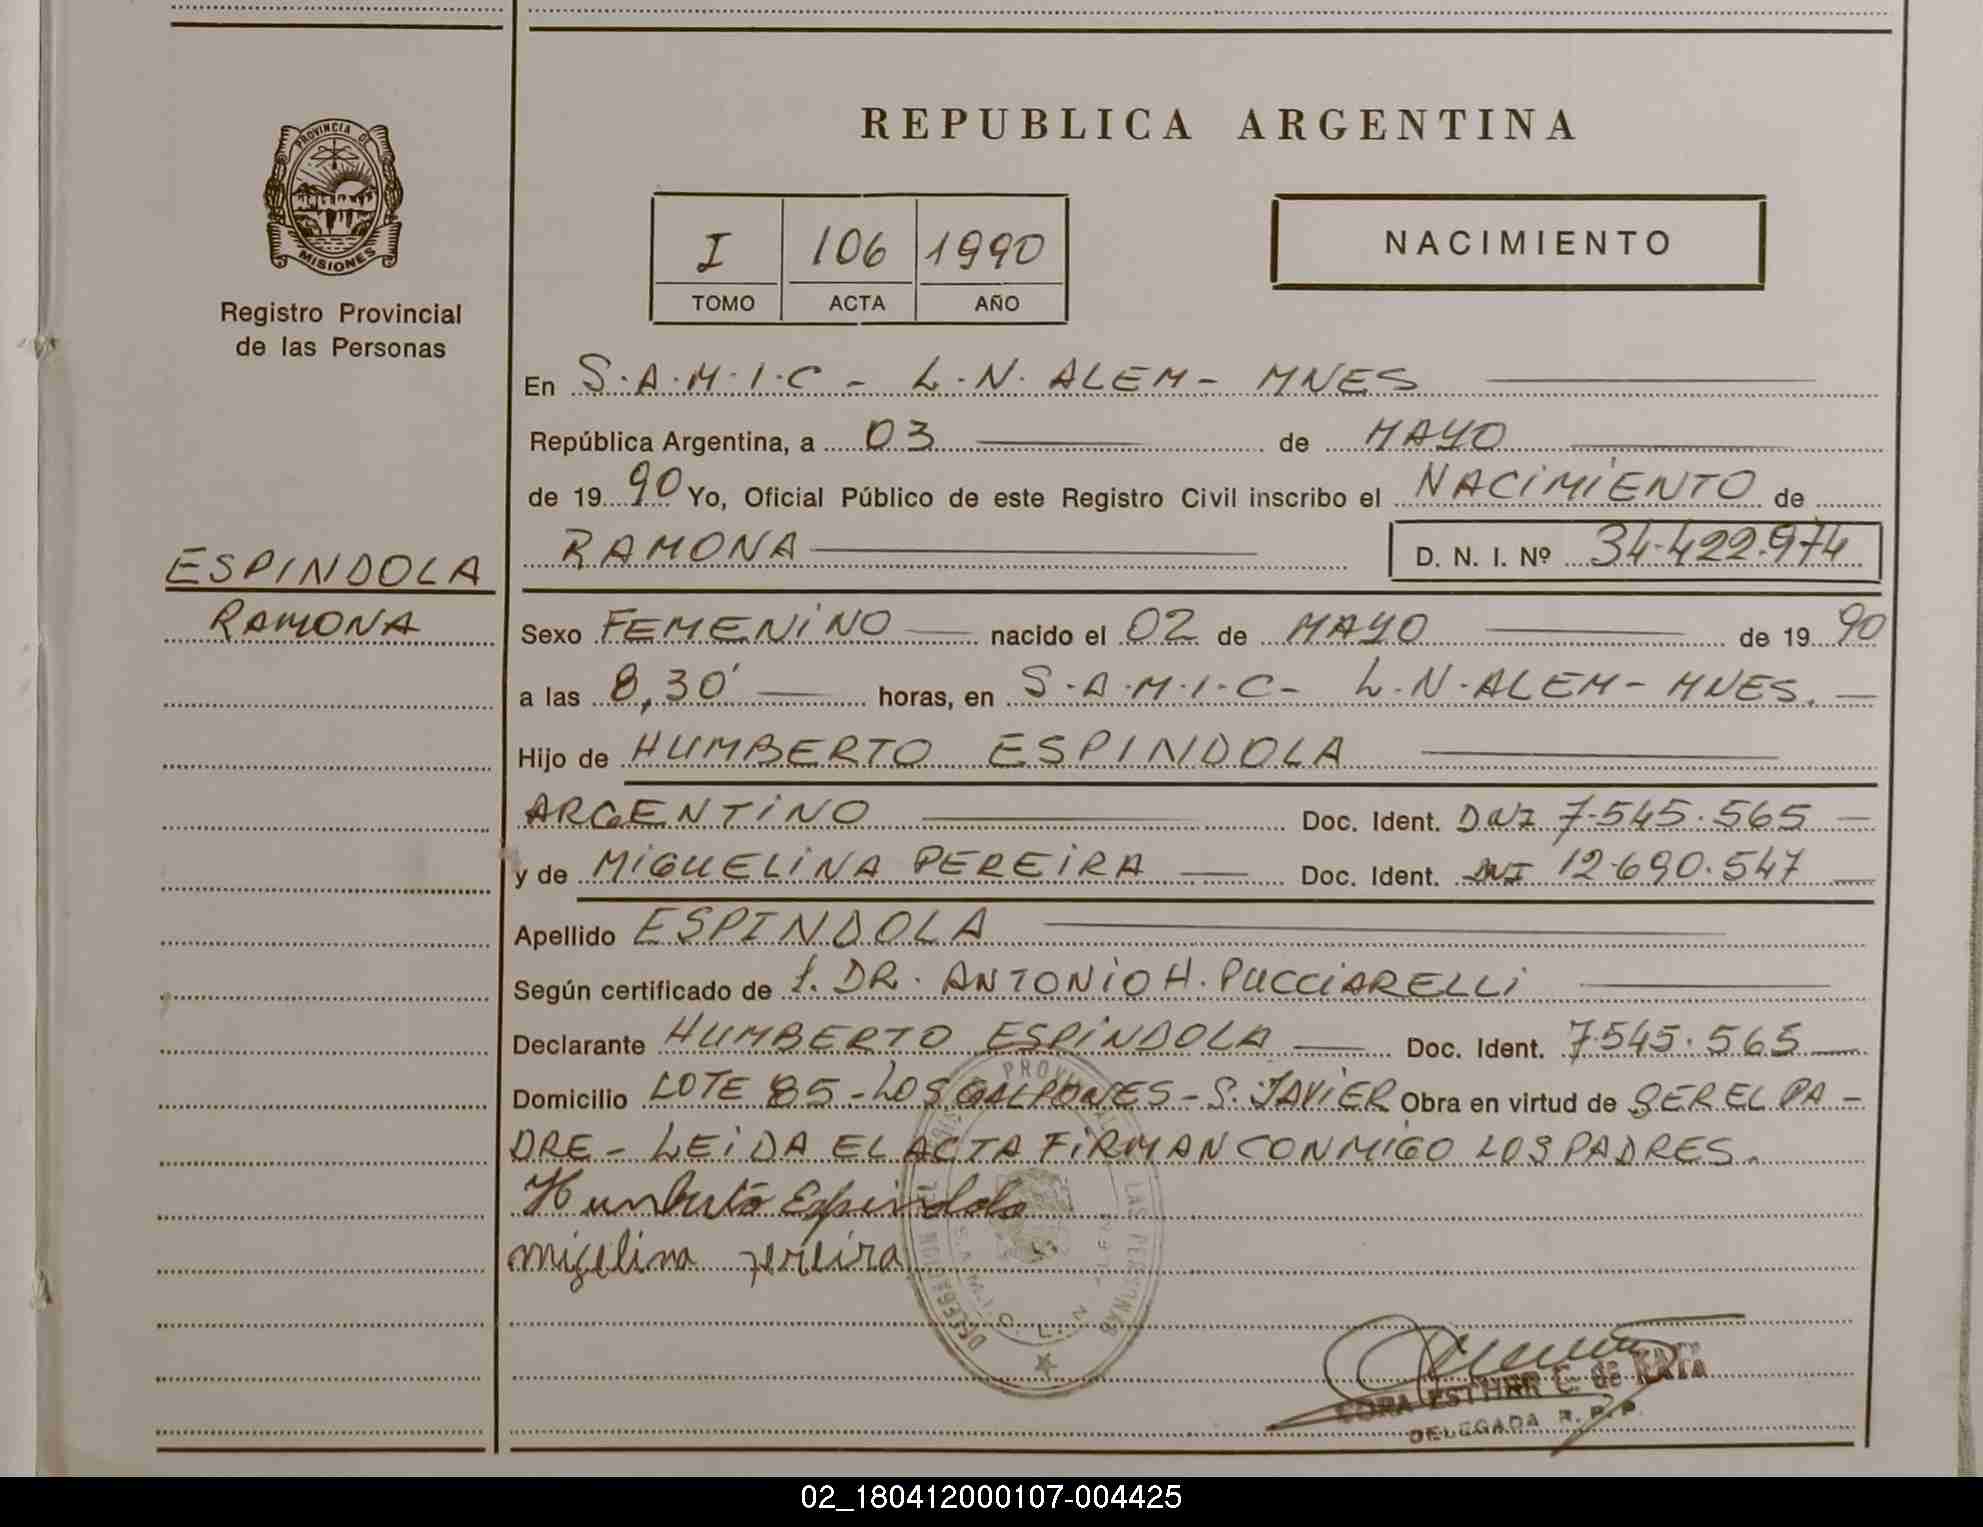 REPUBLICA ARGENTINA
PROVINCIA DE
MISIONES
Registro Provincial
de las Personas
I 106 1990
TOMO ACTA AÑO
NACIMIENTO
En S.A.M.I.C - L.N. ALEM - MNES
República Argentina, a 03 de MAYO
de 1990 Yo, Oficial Público de este Registro Civil inscribo el NACIMIENTO de
RAMONA D. N. I. Nº 34.422.974
ESPINDOLA
RAMONA
Sexo FEMENINO nacido el 02 de MAYO de 1990
a las 8,30' horas, en S.A.M.I.C - L.N. ALEM - MNES.
Hijo de HUMBERTO ESPINDOLA
ARGENTINO Doc. Ident. DNI 7.545.565
y de MIGUELINA PEREIRA Doc. Ident. DNI 12.690.547
Apellido ESPINDOLA
Según certificado de DR. ANTONIO H. PUCCIARELLI
Declarante HUMBERTO ESPINDOLA Doc. Ident. 7.545.565
Domicilio LOTE 85 - LOS GALPONES - S. JAVIER Obra en virtud de SER EL PA-
DRE - LEIDA EL ACTA FIRMAN CONMIGO LOS PADRES.
Humberto Espindola
migelina pereira
DELEGACION
LAS PERSONAS
S.A.M.I.C. L.N.
CORA ESTHER C. de
DELEGADA R. P. P.
02_180412000107-004425